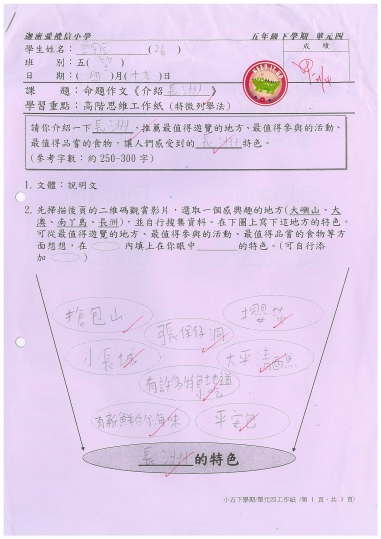 迦密愛禮信小學 五年級下學期 單元四
學生姓名： (26) 成績
班 別：五( )
日 期：(四)月(十九)日
課 題：命題作文《介紹長洲》
學習重點：高階思維工作紙 (特徵列舉法)
請你介紹一下長洲，推薦最值得遊覽的地方、最值得參與的活動、
最值得品嘗的食物，讓人們感受到的長洲特色。
(參考字數：約 250-300 字)
1. 文體：說明文
2. 先掃描後頁的二維碼觀賞影片，選取一個感興趣的地方(大嶼山、大
澳、南丫島、長洲)，並自行搜集資料。在下圖上寫下這地方的特色。
可從最值得遊覽的地方、最值得參與的活動、最值得品嘗的食物等方
面想想，在 內填上在你眼中 的特色。(可自行添
加 )
搶包山
張保仔洞
小長城
太平清醮
有許多特色地道小吃
有新鮮的海味
平安包
長洲的特色
小五下學期/單元四工作紙 /第 1 頁，共 3 頁/